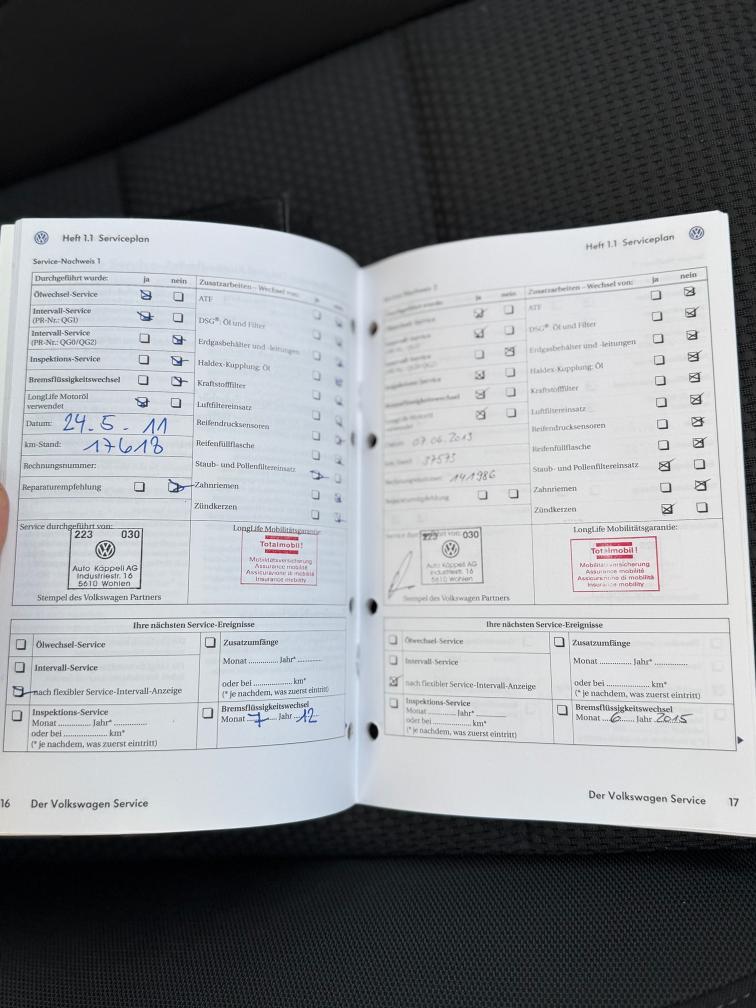 Heft 1.1 Serviceplan
Service-Nachweis 1
Durchgeführt wurde: ja nein
Ölwechsel-Service
Intervall-Service
(PR-Nr.: QG1)
Intervall-Service
(PR-Nr.: QG0/QG2)
Inspektions-Service
Bremsflüssigkeitswechsel
LongLife Motoröl
verwendet
Datum: 24.5.11
km-Stand: 17618
Rechnungsnummer:
Reparaturempfehlung
Zusatzarbeiten – Wechsel von:
ATF
DSG®: Öl und Filter
Erdgasbehälter und -leitungen
Haldex-Kupplung: Öl
Kraftstofffilter
Luftfiltereinsatz
Reifendrucksensoren
Reifenfüllflasche
Staub- und Pollenfiltereinsatz
Zahnriemen
Zündkerzen
Service durchgeführt von:
223 030
Auto Käppeli AG
Industriestr. 16
5610 Wohlen
LongLife Mobilitätsgarantie:
Totalmobil!
Mobilitätsversicherung
Assurance mobilité
Assicurazione di mobilità
Insurance mobility
Stempel des Volkswagen Partners
Ihre nächsten Service-Ereignisse
Ölwechsel-Service
Intervall-Service
nach flexibler Service-Intervall-Anzeige
Inspektions-Service
Monat ............ Jahr* ..............
oder bei .................... km*
(* je nachdem, was zuerst eintritt)
Zusatzumfänge
Monat ............ Jahr* ..............
oder bei .................... km*
(* je nachdem, was zuerst eintritt)
Bremsflüssigkeitswechsel
Monat 7 Jahr 12
16 Der Volkswagen Service
Heft 1.1 Serviceplan
ja nein
Zusatzarbeiten – Wechsel von: ja nein
ATF
DSG®: Öl und Filter
Erdgasbehälter und -leitungen
Haldex-Kupplung: Öl
Kraftstofffilter
Luftfiltereinsatz
Reifendrucksensoren
Reifenfüllflasche
Staub- und Pollenfiltereinsatz
Zahnriemen
Zündkerzen
07.06.2013
37573
141986
223 030
Auto Käppeli AG
Industriestr. 16
5610 Wohlen
LongLife Mobilitätsgarantie:
Totalmobil!
Mobilitätsversicherung
Assurance mobilité
Assicurazione di mobilità
Insurance mobility
Stempel des Volkswagen Partners
Ihre nächsten Service-Ereignisse
Ölwechsel-Service
Intervall-Service
nach flexibler Service-Intervall-Anzeige
Inspektions-Service
Monat ............ Jahr* ..............
oder bei .................... km*
(* je nachdem, was zuerst eintritt)
Zusatzumfänge
Monat ............ Jahr* ..............
oder bei .................... km*
(* je nachdem, was zuerst eintritt)
Bremsflüssigkeitswechsel
Monat 6 Jahr 2015
Der Volkswagen Service 17